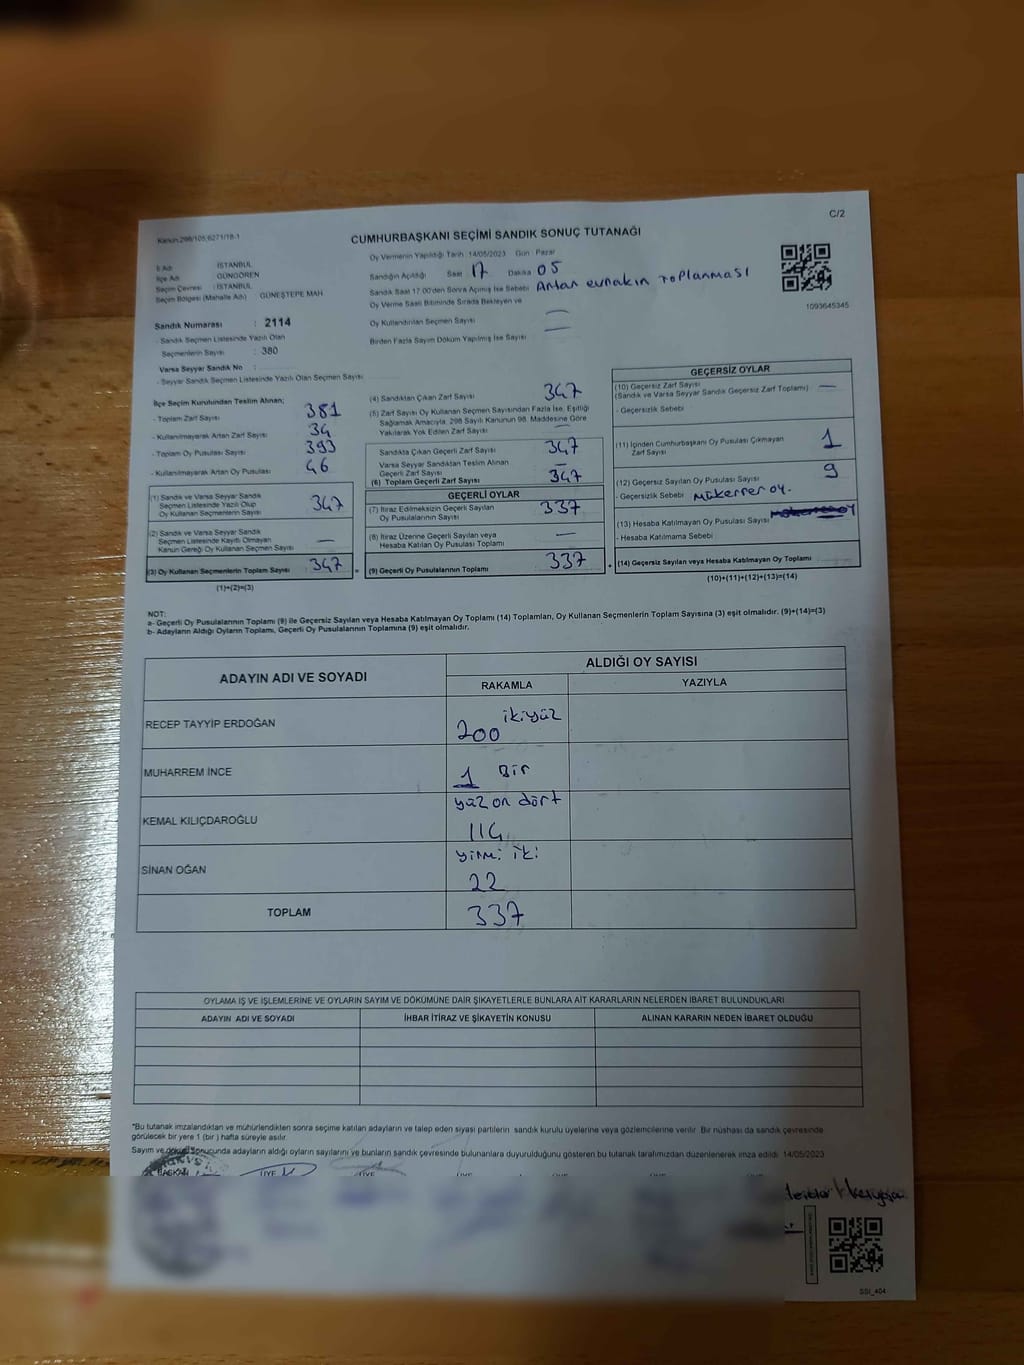 C/2
Kanun:298/105,6271/18-1
CUMHURBAŞKANI SEÇİMİ SANDIK SONUÇ TUTANAĞI
İl Adı : İSTANBUL
İlçe Adı : GÜNGÖREN
Seçim Çevresi : İSTANBUL
Seçim Bölgesi (Mahalle Adı) : GÜNEŞTEPE MAH
Sandık Numarası : 2114
- Sandık Seçmen Listesinde Yazılı Olan
Seçmenlerin Sayısı : 380
Varsa Seyyar Sandık No :
- Seyyar Sandık Seçmen Listesinde Yazılı Olan Seçmen Sayısı
Oy Vermenin Yapıldığı Tarih :14/05/2023 Gün : Pazar
Sandığın Açıldığı Saat 17 Dakika 05
Sandık Saat 17.00'den Sonra Açılmış İse Sebebi Artan evrakın toplanması
Oy Verme Saati Bitiminde Sırada Bekleyen ve
Oy Kullandırılan Seçmen Sayısı —
Birden Fazla Sayım Döküm Yapılmış İse Sayısı —
1093645345
İlçe Seçim Kurulundan Teslim Alınan;
- Toplam Zarf Sayısı 381
- Kullanılmayarak Artan Zarf Sayısı 34
- Toplam Oy Pusulası Sayısı 393
- Kullanılmayarak Artan Oy Pusulası 46
(1) Sandık ve Varsa Seyyar Sandık
Seçmen Listesinde Yazılı Olup
Oy Kullanan Seçmenlerin Sayısı 347
(2) Sandık ve Varsa Seyyar Sandık
Seçmen Listesinde Kayıtlı Olmayan
Kanun Gereği Oy Kullanan Seçmen Sayısı —
(3) Oy Kullanan Seçmenlerin Toplam Sayısı 347 =
(1)+(2)=(3)
(4) Sandıktan Çıkan Zarf Sayısı 347
(5) Zarf Sayısı Oy Kullanan Seçmen Sayısından Fazla İse, Eşitliği
Sağlamak Amacıyla, 298 Sayılı Kanunun 98. Maddesine Göre
Yakılarak Yok Edilen Zarf Sayısı —
Sandıkta Çıkan Geçerli Zarf Sayısı 347
Varsa Seyyar Sandıktan Teslim Alınan
Geçerli Zarf Sayısı —
(6) Toplam Geçerli Zarf Sayısı 347
GEÇERLİ OYLAR
(7) İtiraz Edilmeksizin Geçerli Sayılan
Oy Pusulalarının Sayısı 337
(8) İtiraz Üzerine Geçerli Sayılan veya
Hesaba Katılan Oy Pusulası Toplamı —
(9) Geçerli Oy Pusulalarının Toplamı 337 +
GEÇERSİZ OYLAR
(10) Geçersiz Zarf Sayısı —
(Sandık ve Varsa Seyyar Sandık Geçersiz Zarf Toplamı)
- Geçersizlik Sebebi
(11) İçinden Cumhurbaşkanı Oy Pusulası Çıkmayan
Zarf Sayısı 1
(12) Geçersiz Sayılan Oy Pusulası Sayısı 9
- Geçersizlik Sebebi mükerrer oy.
(13) Hesaba Katılmayan Oy Pusulası Sayısı
- Hesaba Katılmama Sebebi
(14) Geçersiz Sayılan veya Hesaba Katılmayan Oy Toplamı
(10)+(11)+(12)+(13)=(14)
NOT:
a- Geçerli Oy Pusulalarının Toplamı (9) ile Geçersiz Sayılan veya Hesaba Katılmayan Oy Toplamı (14) Toplamları, Oy Kullanan Seçmenlerin Toplam Sayısına (3) eşit olmalıdır. (9)+(14)=(3)
b- Adayların Aldığı Oyların Toplamı, Geçerli Oy Pusulalarının Toplamına (9) eşit olmalıdır.
ADAYIN ADI VE SOYADI
ALDIĞI OY SAYISI
RAKAMLA YAZIYLA
RECEP TAYYİP ERDOĞAN 200 ikiyüz
MUHARREM İNCE 1 Bir
KEMAL KILIÇDAROĞLU yüz on dört
114
SİNAN OĞAN yirmi iki
22
TOPLAM 337
OYLAMA İŞ VE İŞLEMLERİNE VE OYLARIN SAYIM VE DÖKÜMÜNE DAİR ŞİKAYETLERLE BUNLARA AİT KARARLARIN NELERDEN İBARET BULUNDUKLARI
ADAYIN ADI VE SOYADI İHBAR İTİRAZ VE ŞİKAYETİN KONUSU ALINAN KARARIN NEDEN İBARET OLDUĞU
*Bu tutanak imzalandıktan ve mühürlendikten sonra seçime katılan adayların ve talep eden siyasi partilerin sandık kurulu üyelerine veya gözlemcilerine verilir. Bir nüshası da sandık çevresinde
görülecek bir yere 1 (bir) hafta süreyle asılır.
Sayım ve döküm sonucunda adayların aldığı oyların sayılarını ve bunların sandık çevresinde bulunanlara duyurulduğunu gösteren bu tutanak tarafımızdan düzenlenerek imza edildi. 14/05/2023
BAŞKAN ÜYE ÜYE ÜYE ÜYE ÜYE
SSİ_404